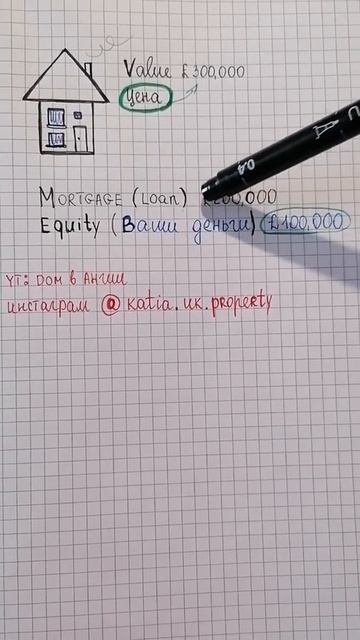 Value £300,000
Цена
MORTGAGE (Loan) £200,000
Equity (Ваши деньги) £100,000
YT: Дом в Англии
инстаграм @ katia.uk.property
0.4